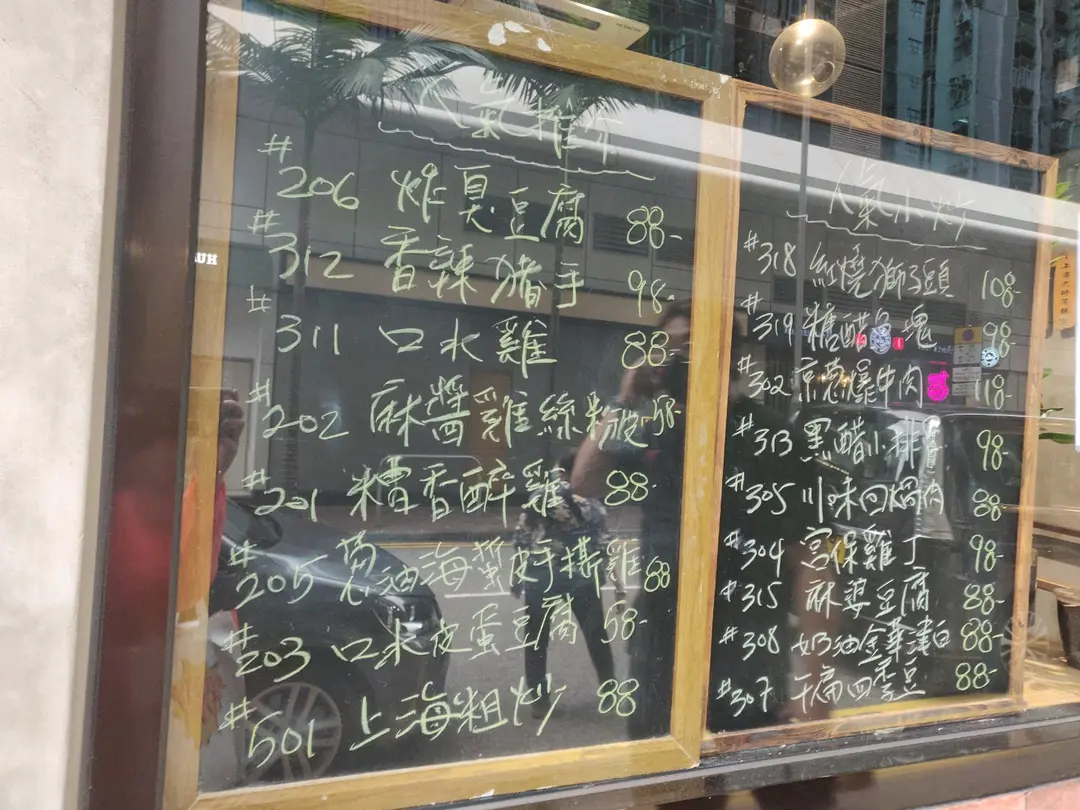 人氣推介
#206 炸臭豆腐 88-
#312 香辣猪手 98-
#311 口水雞 88-
#202 麻醬雞絲粉皮 58-
#201 糟香醉雞 88-
#205 葱油海蜇皮手撕雞 88
#203 口水皮蛋豆腐 58-
#501 上海粗炒 88
人氣小炒
#318 紅燒獅子頭 108-
#319 糖醋魚塊 98-
#302 京葱爆牛肉 118-
#313 黑醋小排骨 98-
#305 川味回鍋肉 88
#304 宮保雞丁 98-
#315 麻婆豆腐 88-
#308 奶油金華津白 88-
#307 干扁四季豆 88-
UH